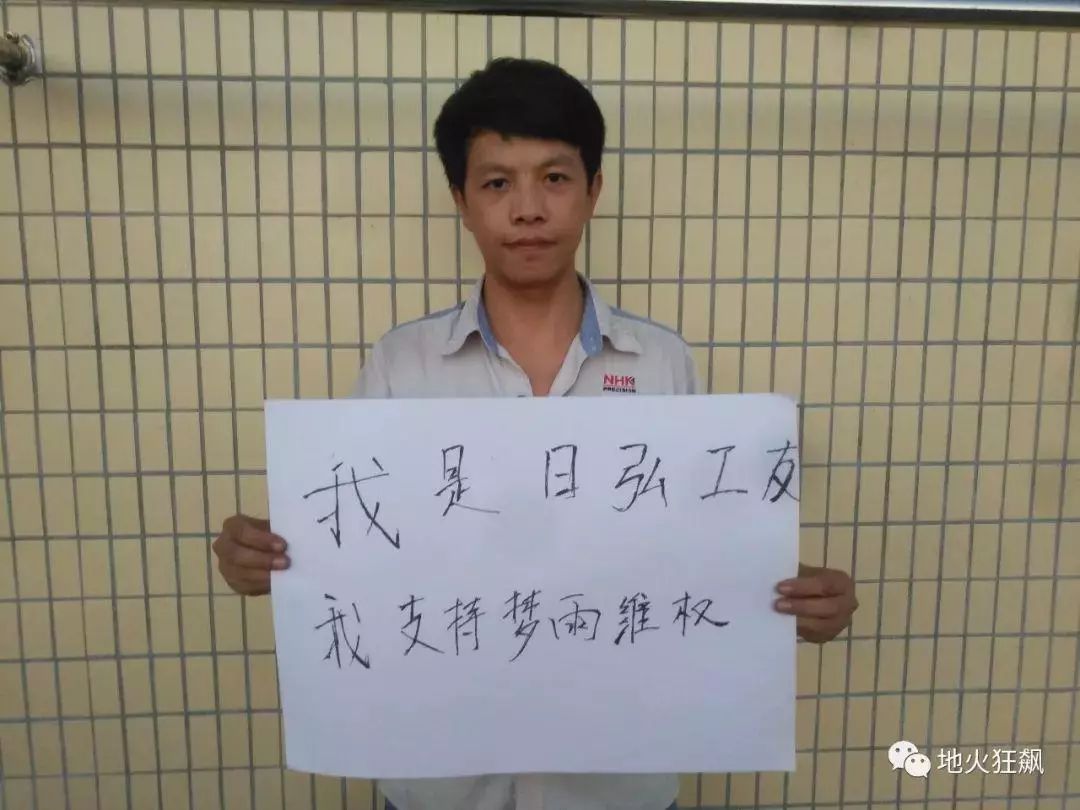 NHK
PRECISION
我是日弘工友
我支持梦雨維权
地火狂飙